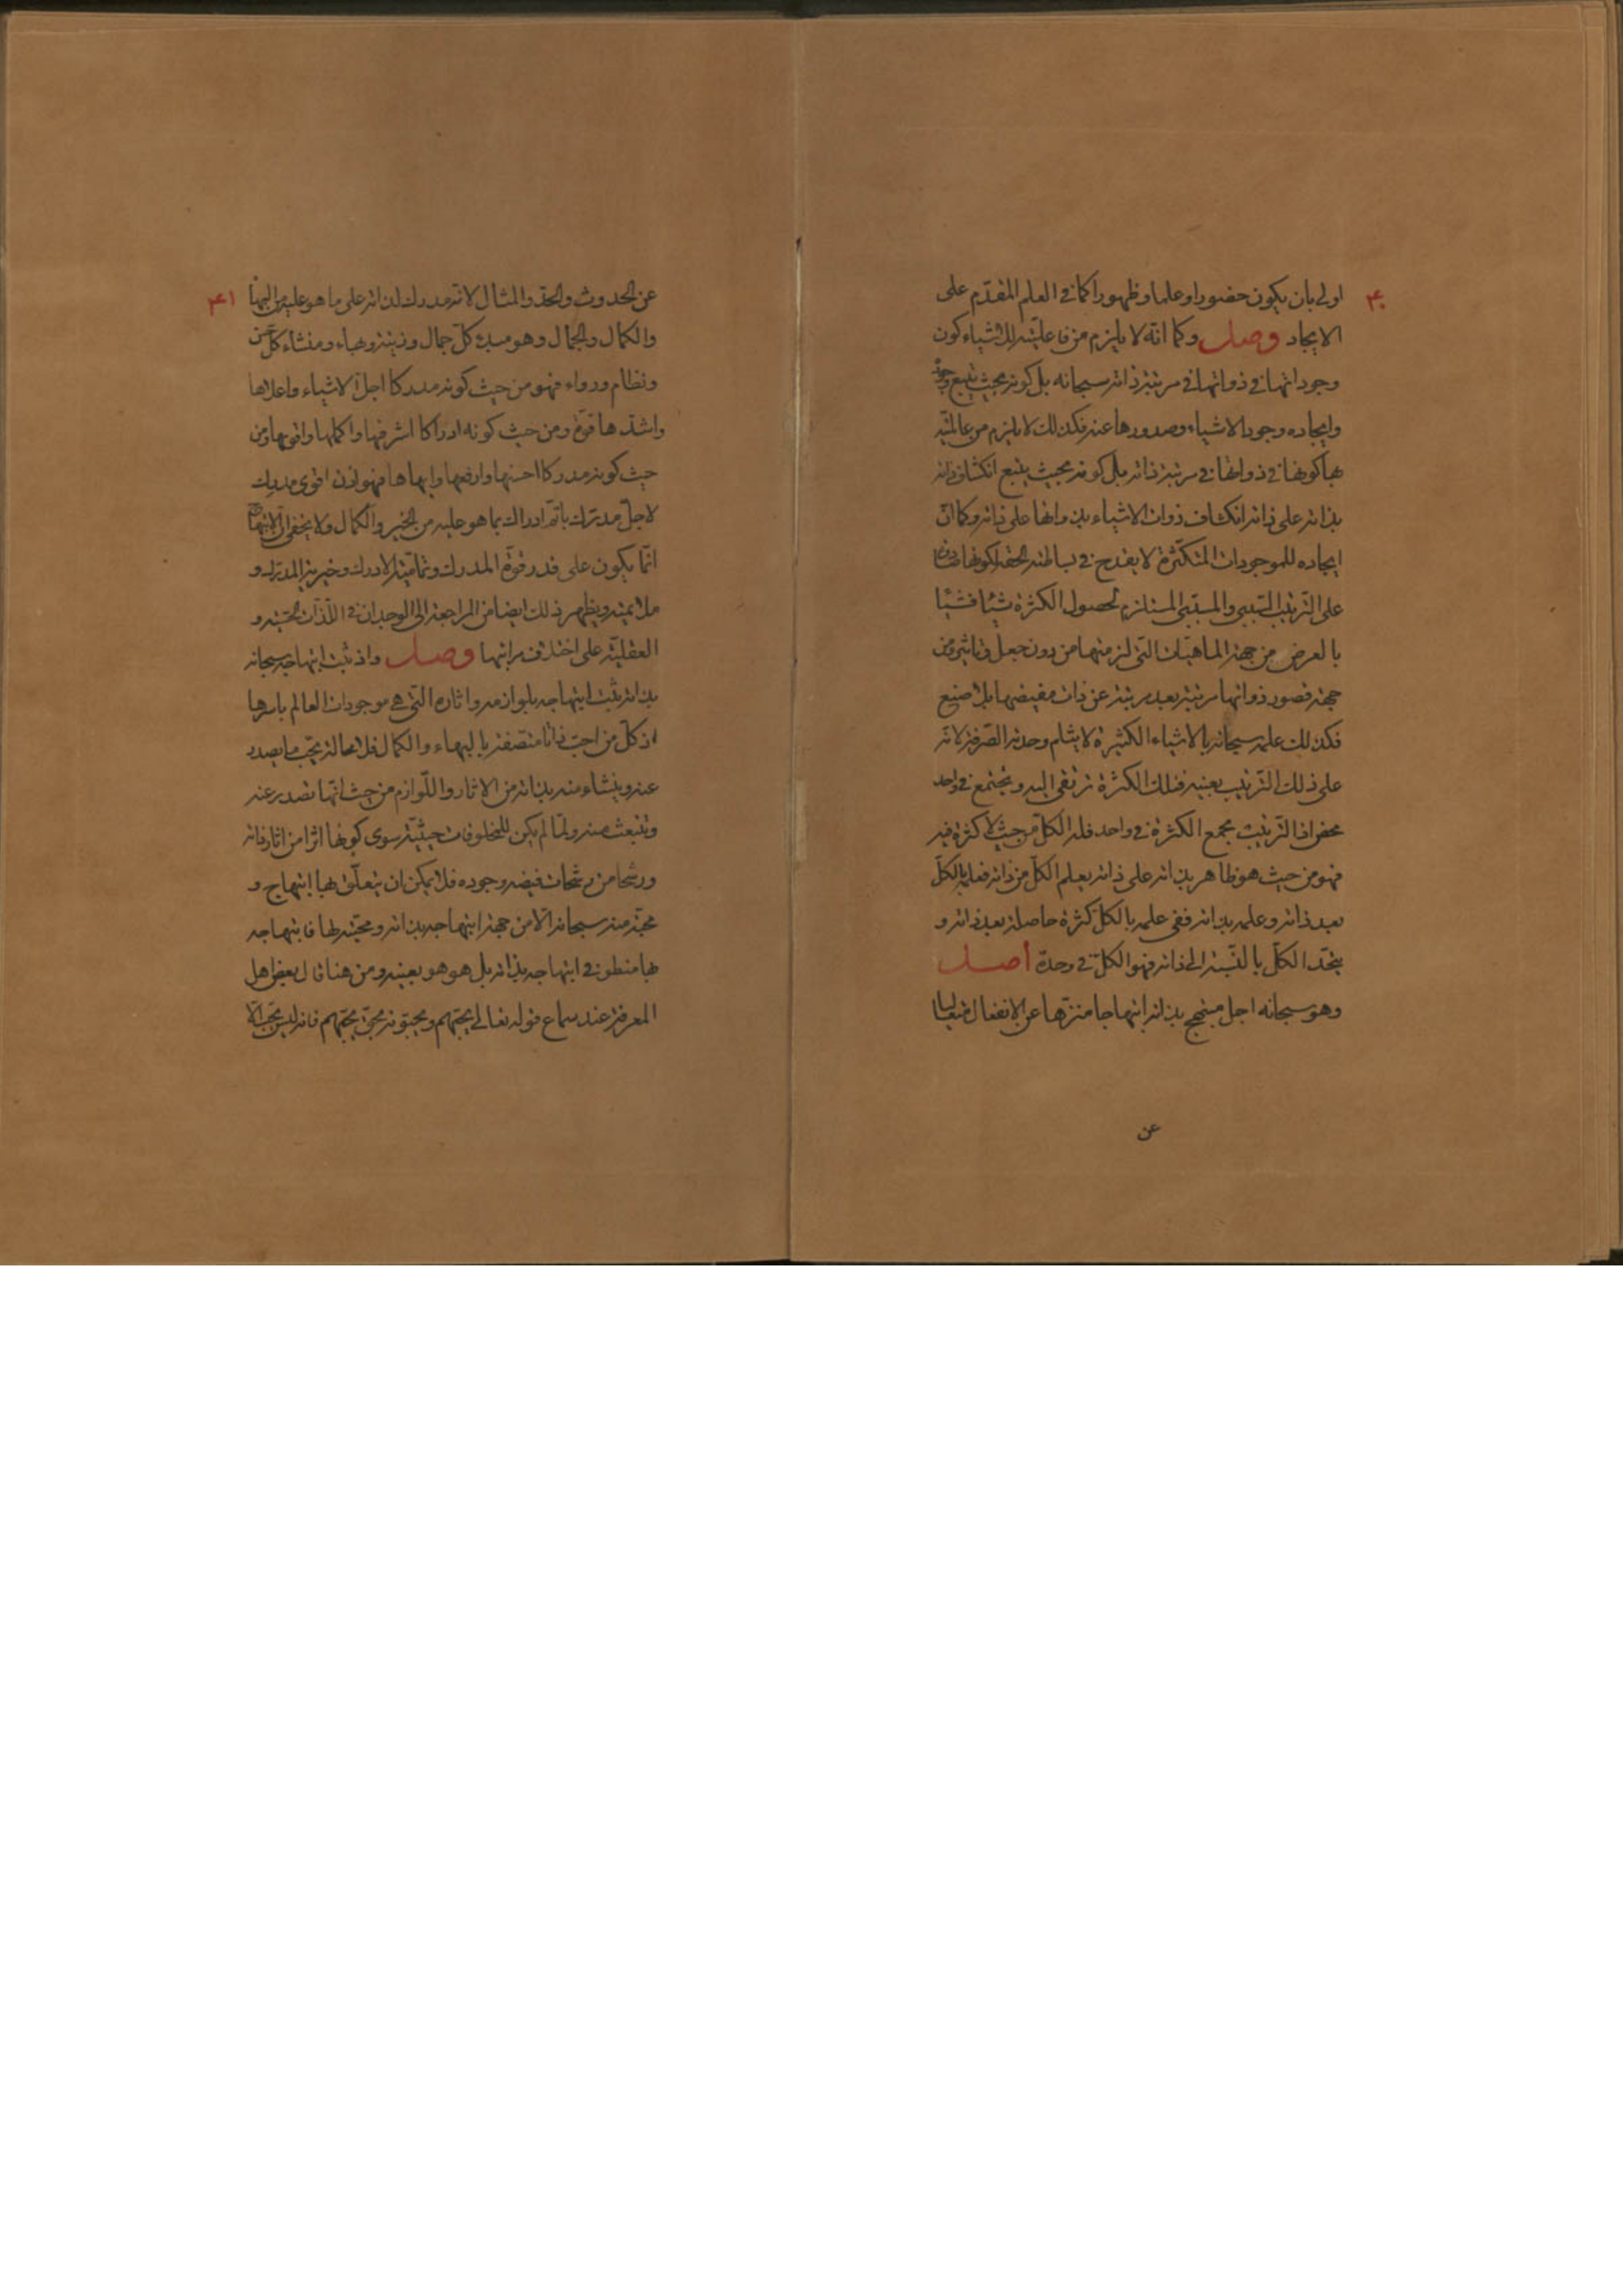 ۴۰
اولى بان يكون حضورا وعلما وظهورا كما فى العلم المقدّم على
الايجاد وصل وكما انّه لا يلزم من فاعليّته للاشياء كون
وجوداتها فى ذواتها فى مرتبة ذاته سبحانه بل كونه بحيث يتبع وجوده
وايجاده وجود الاشياء وصدورها عنه فكذلك لا يلزم من عالميّته
بها كونها فى ذواتها فى مرتبة ذاته بل كونه بحيث يتبع انكشاف ذاته
بذاته على ذاته انكشاف ذوات الاشياء بذواتها على ذاته وكما انّ
ايجاده للموجودات المتكثّرة لا يقدح فى بساطته الحقّة لكونها صادرة
على الترتيب السّببى والمسبّبى المستلزم لحصول الكثرة شيئا فشيئا
بالعرض من جهة الماهيّات التى لزمتها من دون جعل وتاثير ومن
جهة قصور ذواتها مرتبة بعد مرتبة عن ذات مفيضها بلا صنيع
فكذلك علمه سبحانه بالاشياء الكثيرة لا يثلم وحدته الصّرفة لانّه
على ذلك الترتيب بعينه فتلك الكثرة ترتقى اليه وتجتمع فى واحد
محض اذ الترتيب يجمع الكثرة فى واحد فله الكلّ من حيث لا كثرة فيه
فهو من حيث هو ظاهر بذاته على ذاته يعلم الكلّ من ذاته فعلمه بالكلّ
بعد ذاته وعلمه بذاته ففى علمه بالكلّ كثرة حاصلة بعد ذاته و
يتّحد الكلّ بالنّسبة الى ذاته فهو الكلّ فى وحدة أصل
وهو سبحانه اجل مبتهج بذاته ابتهاجا منزّها عن الانفعال متعاليا
عن
۴۱
عن الحدوث والحدّ والمثال لانّه مدرك لذاته على ما هو عليه من البهاء
والكمال والجمال وهو مبدء كلّ جمال وزينة وبهاء ومنشاء كلّ حسن
ونظام ورواء فهو من حيث كونه مدركا اجلّ الاشياء واعلاها
واشدّها قوّة ومن حيث كونه ادراكا اشرفها واكملها واقويها ومن
حيث كونه مدركا احسنها وارفعها وابهاها فهو اذن اقوى مدرك
لاجلّ مدرك باتمّ ادراك بما هو عليه من الخير والكمال ولا يخفى ان الابتهاج
انّما يكون على قدر قوّة المدرك وتماميّة الادراك وخيريّة المدرك و
ملايمته ويظهر ذلك ايضا من المراجعة الى الوجدان فى اللّذّات الحسّيّة و
العقليّة على اختلاف مراتبها وصل واذ ثبت ابتهاجه سبحانه
بذاته ثبت ابتهاجه بلوازمه واثاره التى هى موجودات العالم باسرها
اذ كلّ من احبّ ذاتا متّصفة بالبهاء والكمال فلا محالة يحبّ ما يصدر
عنه وينشاء منه بذاته من الاثار واللّوازم من حيث انّها تصدر عنه
وتنبعث منه ولمّا لم يكن للمخلوقات حيثيّة سوى كونها اثرا من اثار ذاته
ورشحا من رشحات فيضه وجوده فلا يمكن ان يتعلّق بها ابتهاج و
محبّة منه سبحانه الّا من جهة ابتهاجه بذاته ومحبّته لها فابتهاجه
بها منطو فى ابتهاجه بذاته بل هو هو بعينه ومن هنا قال بعض اهل
المعرفة عند سماع قوله تعالى يحبّهم ويحبّونه بحقّ يحبّهم فانه ليس يحبّ الّا